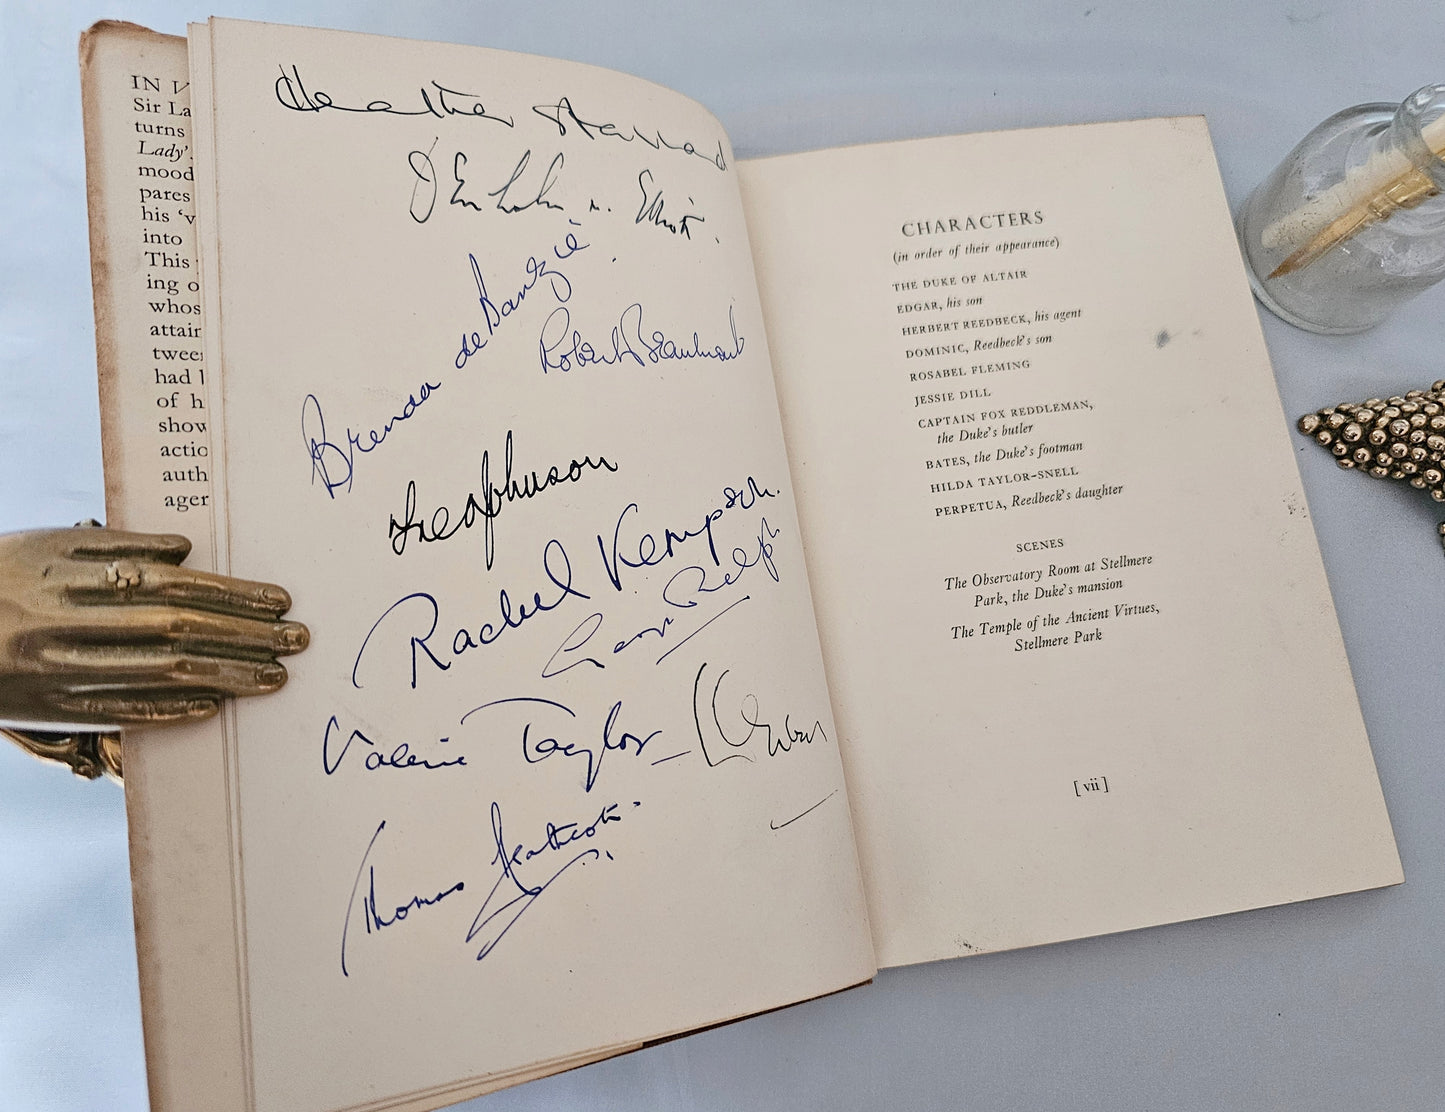 IN V
Sir La
turns
Lady'.
mood
pares
his 'v
into
This
ing o
whos
attair
twee
had l
of h
show
actio
auth
ager
Heather Stannard
Denholm Elliott.
Brenda de Banzie
Robert Beaumont
Leo Johnson
Rachel Kempson.
George Relph
Valerie Taylor
Thomas Heathcote.
CHARACTERS
(in order of their appearance)
THE DUKE OF ALTAIR
EDGAR, his son
HERBERT REEDBECK, his agent
DOMINIC, Reedbeck's son
ROSABEL FLEMING
JESSIE DILL
CAPTAIN FOX REDDLEMAN,
the Duke's butler
BATES, the Duke's footman
HILDA TAYLOR-SNELL
PERPETUA, Reedbeck's daughter
SCENES
The Observatory Room at Stellmere
Park, the Duke's mansion
The Temple of the Ancient Virtues,
Stellmere Park
[ vii ]